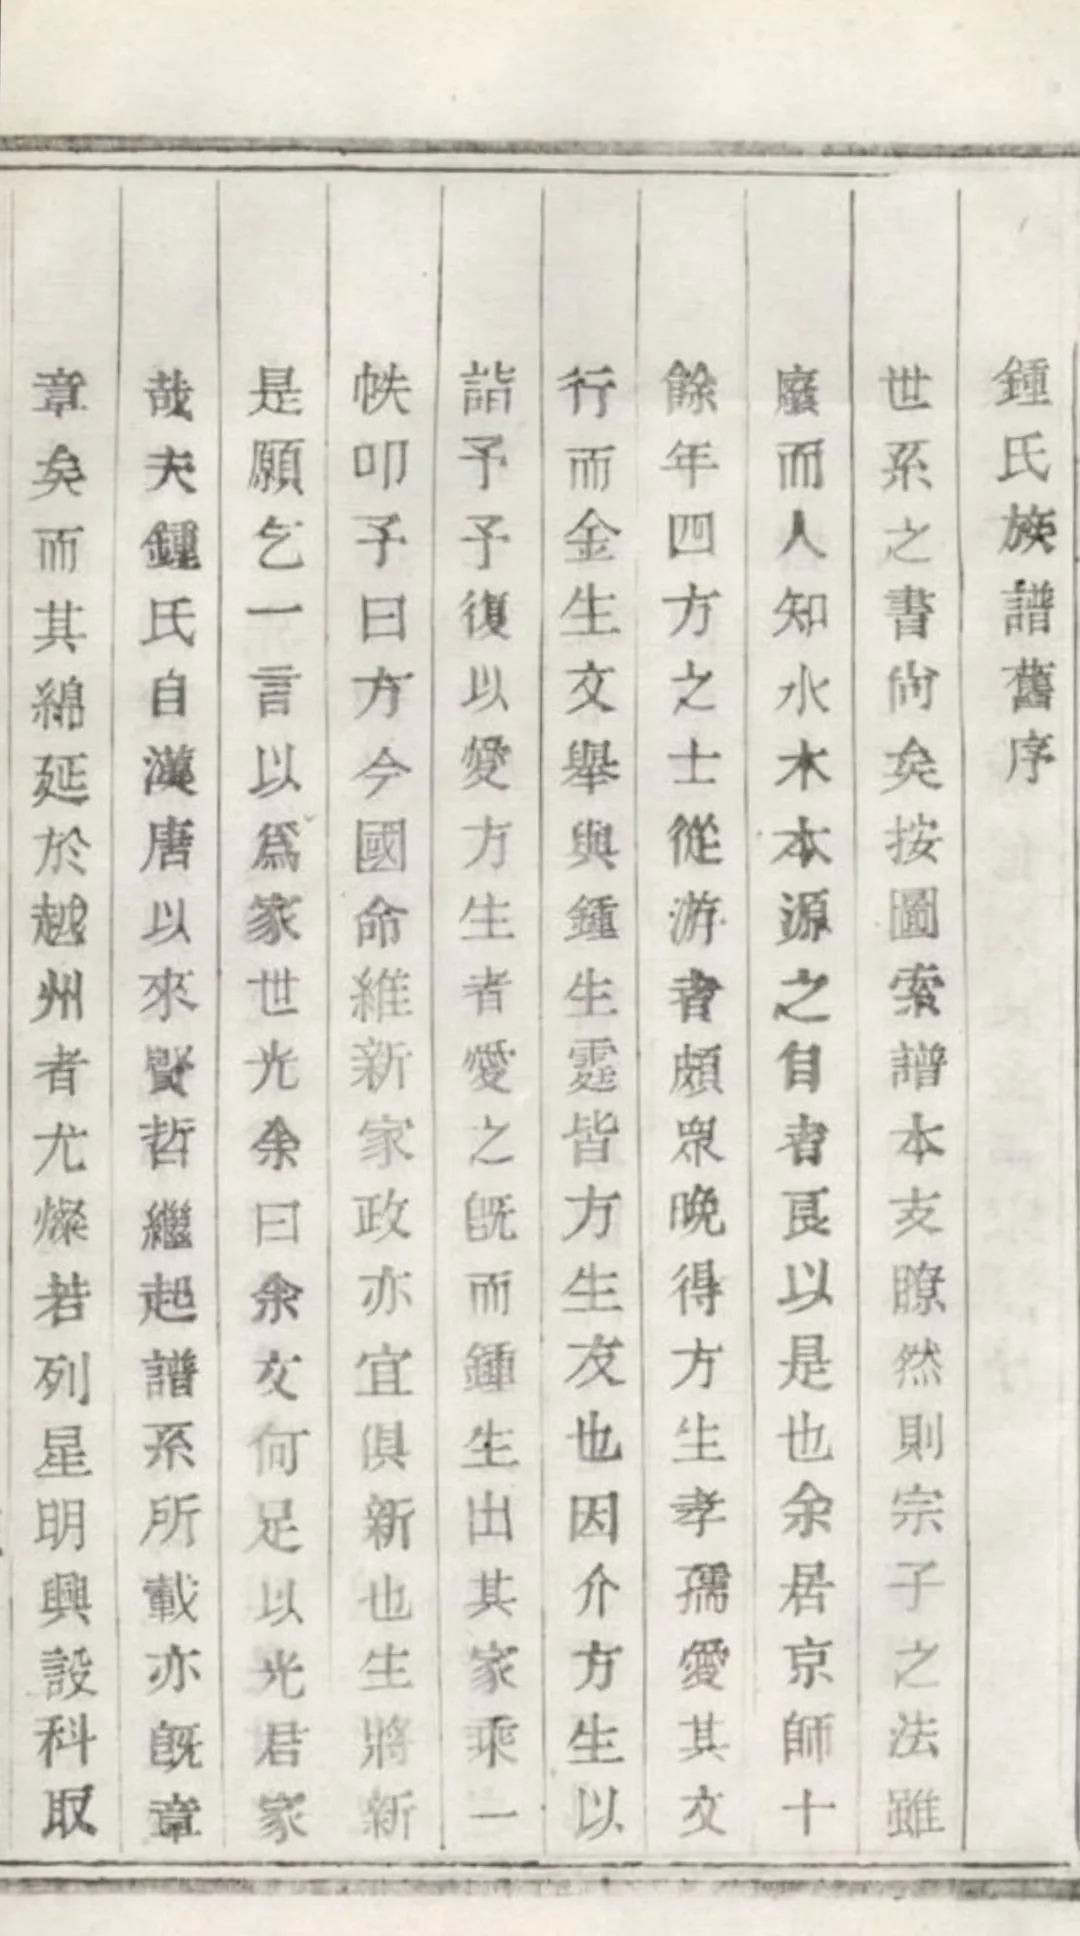 鍾氏族譜舊序
世系之書尙矣按圖索譜本支瞭然則宗子之法雖
廢而人知水木本源之自者良以是也余居京師十
餘年四方之士從游者頗衆晚得方生孝孺愛其文
行而金生文舉與鍾生霆皆方生友也因介方生以
詣予予復以愛方生者愛之旣而鍾生出其家乘一
帙叩予曰方今國命維新家政亦宜俱新也生將新
是願乞一言以爲家世光余曰余文何足以光君家
哉夫鍾氏自漢唐以來賢哲繼起譜系所載亦旣章
章矣而其綿延於越州者尤燦若列星明興設科取